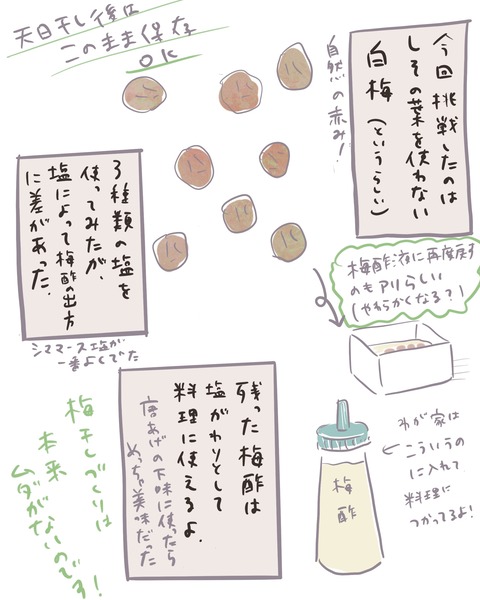 天日干し後は
このまま保存
OK
今回挑戦したのは
しその葉を使わない
白梅（というらしい）
自然の赤み！
3種類の塩を
使ってみたが、
塩によって梅酢の出方
に差があった。
シママース塩が
一番よくでた
梅酢液に再度戻す
のもアリらしい
（やわらかくなる？）
残った梅酢は
塩がわりとして
料理に使えるよ。
唐あげの下味に使ったら
めっちゃ美味だった
わが家は
こういうの
に入れて
料理に
つかってるよ！
梅酢
梅干しづくりは
本来
ムダがないのです！